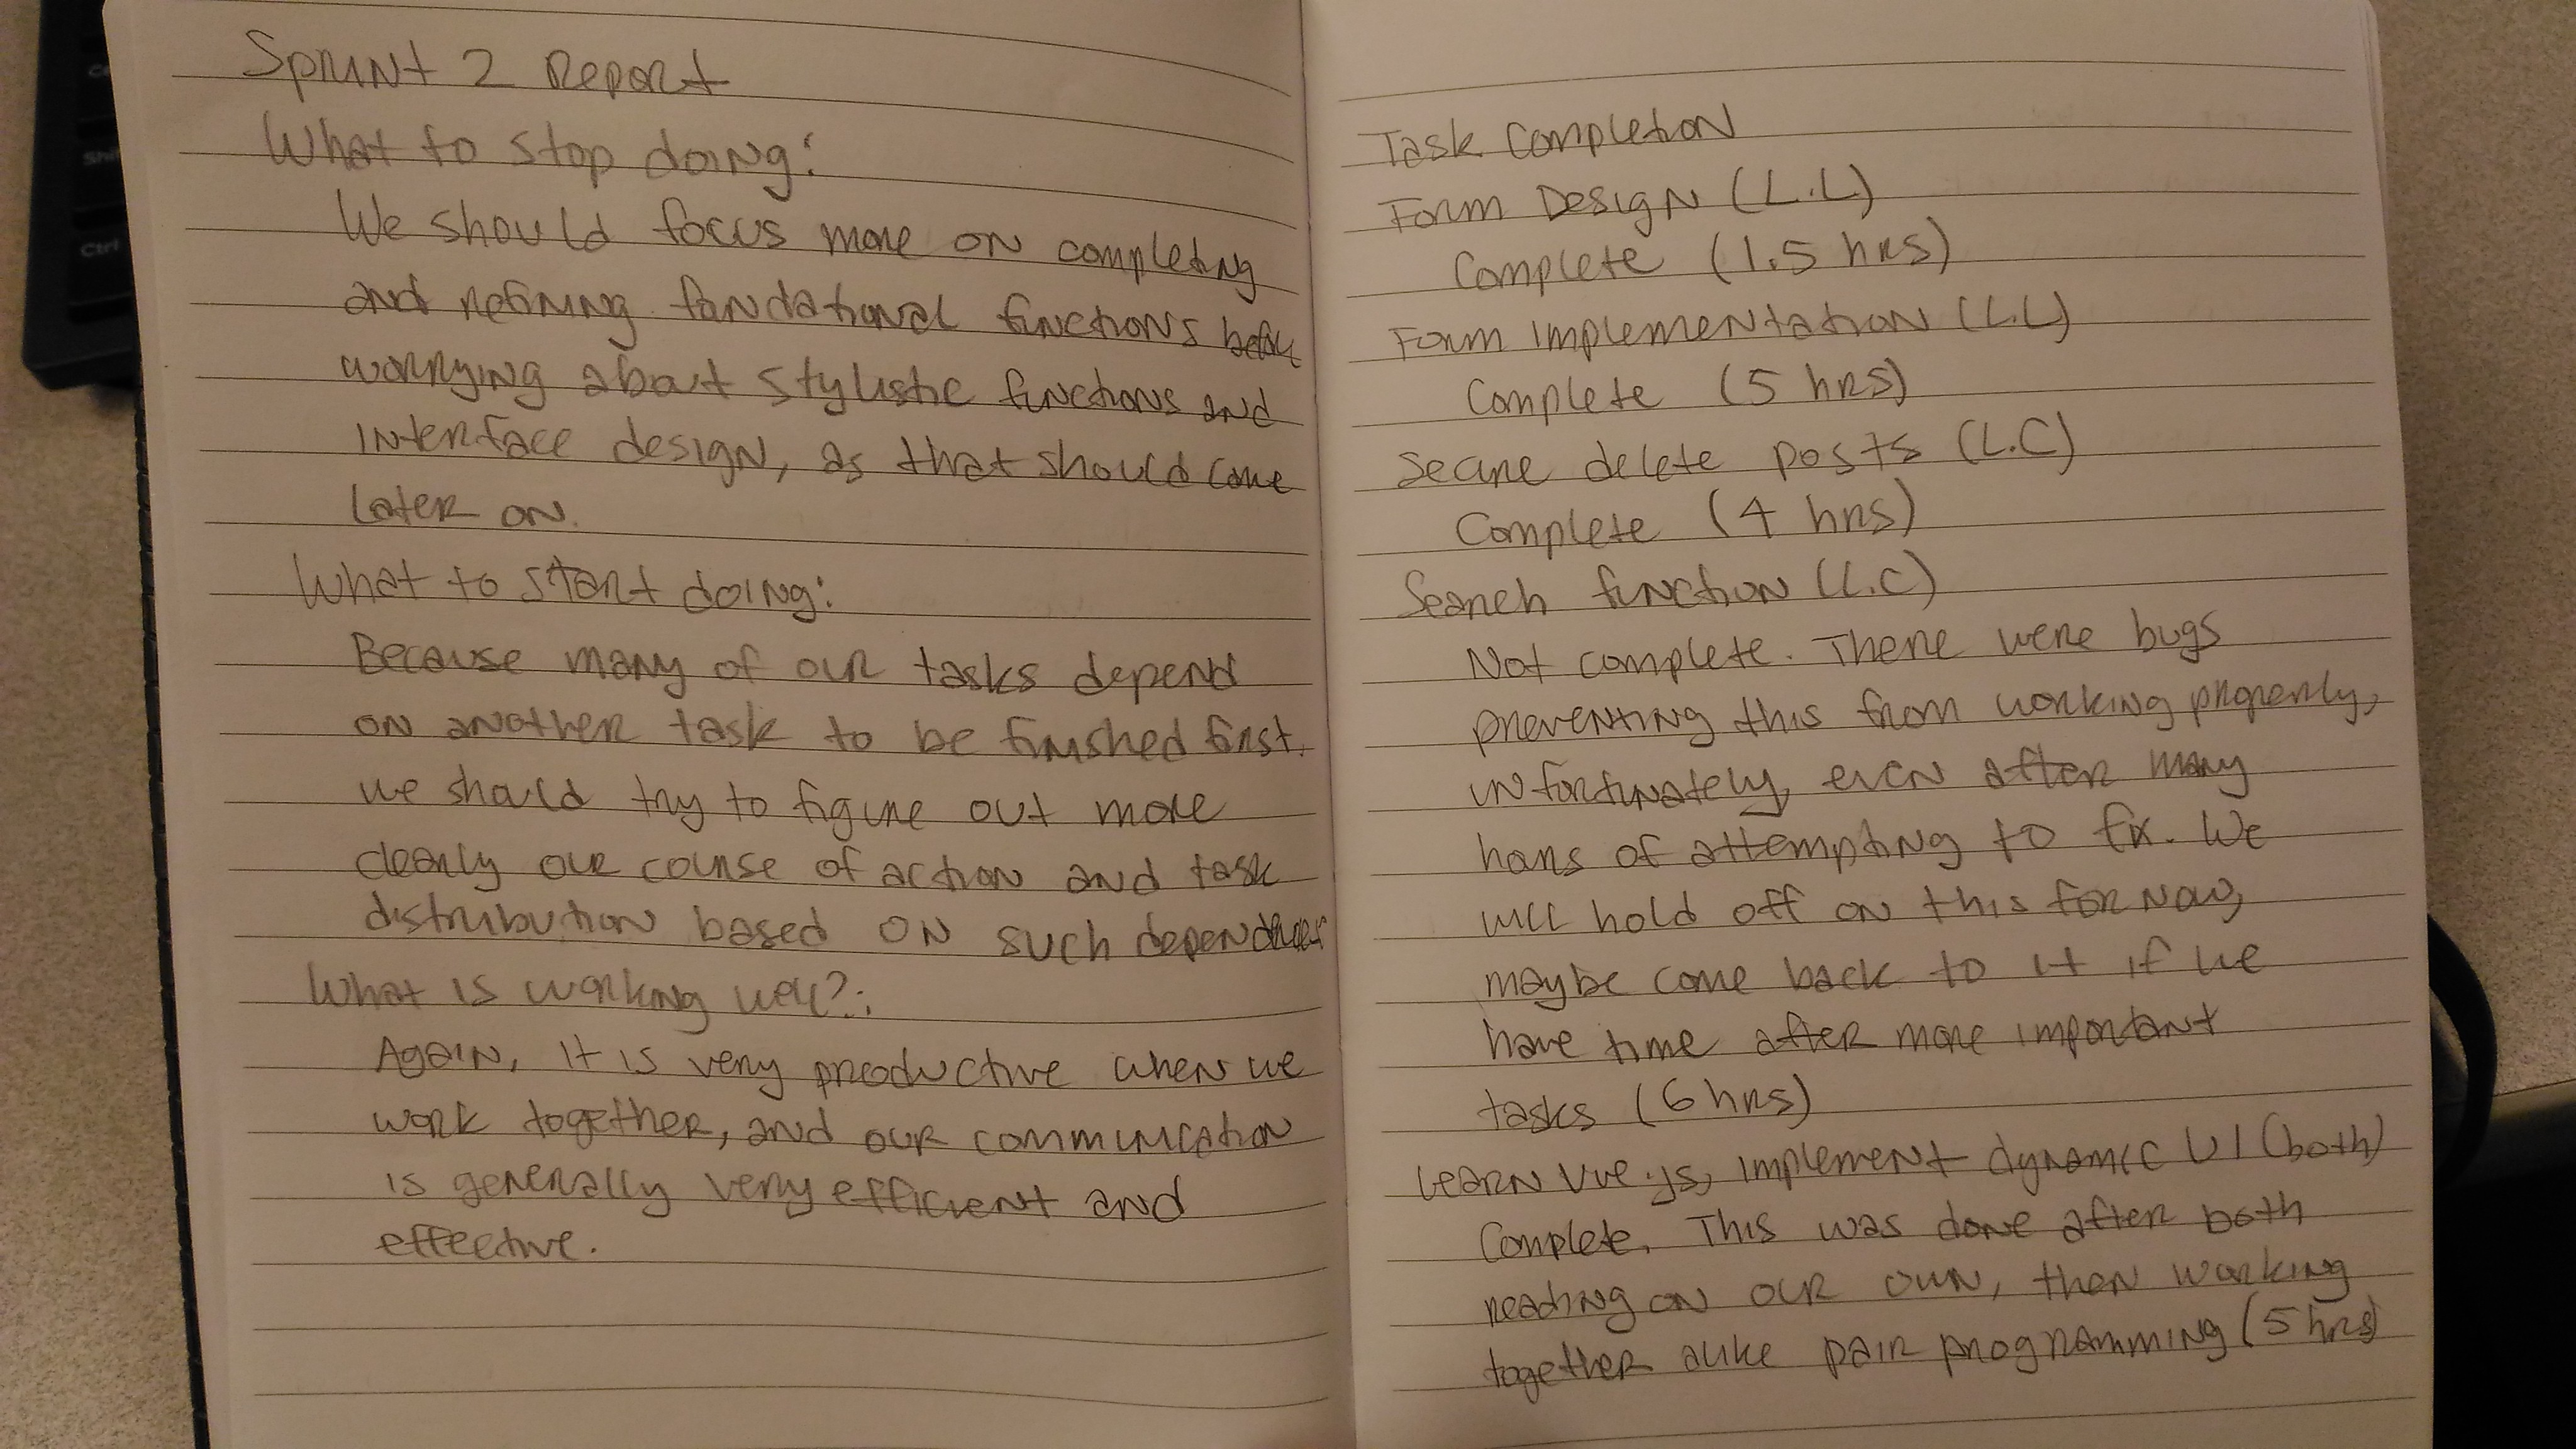 Sprint 2 Report
What to stop doing:
We should focus more on completing
and refining foundational functions before
worrying about stylistic functions and
interface design, as that should come
later on.
What to start doing:
Because many of our tasks depend
on another task to be finished first,
we should try to figure out more
clearly our course of action and task
distribution based on such dependencies
What is working well?:
Again, it is very productive when we
work together, and our communication
is generally very efficient and
effective.
Task Completion
Form Design (L.L)
Complete (1.5 hrs)
Form Implementation (L.L)
Complete (5 hrs)
Secure delete posts (L.C)
Complete (4 hrs)
Search function (L.C)
Not complete. There were bugs
preventing this from working properly,
unfortunately, even after many
hours of attempting to fix. We
will hold off on this for now,
maybe come back to it if we
have time after more important
tasks (6 hrs)
Learn Vue.js, implement dynamic UI (both)
Complete. This was done after both
reading on our own, then working
together alike pair programming (5 hrs)
Shi
Ctrl